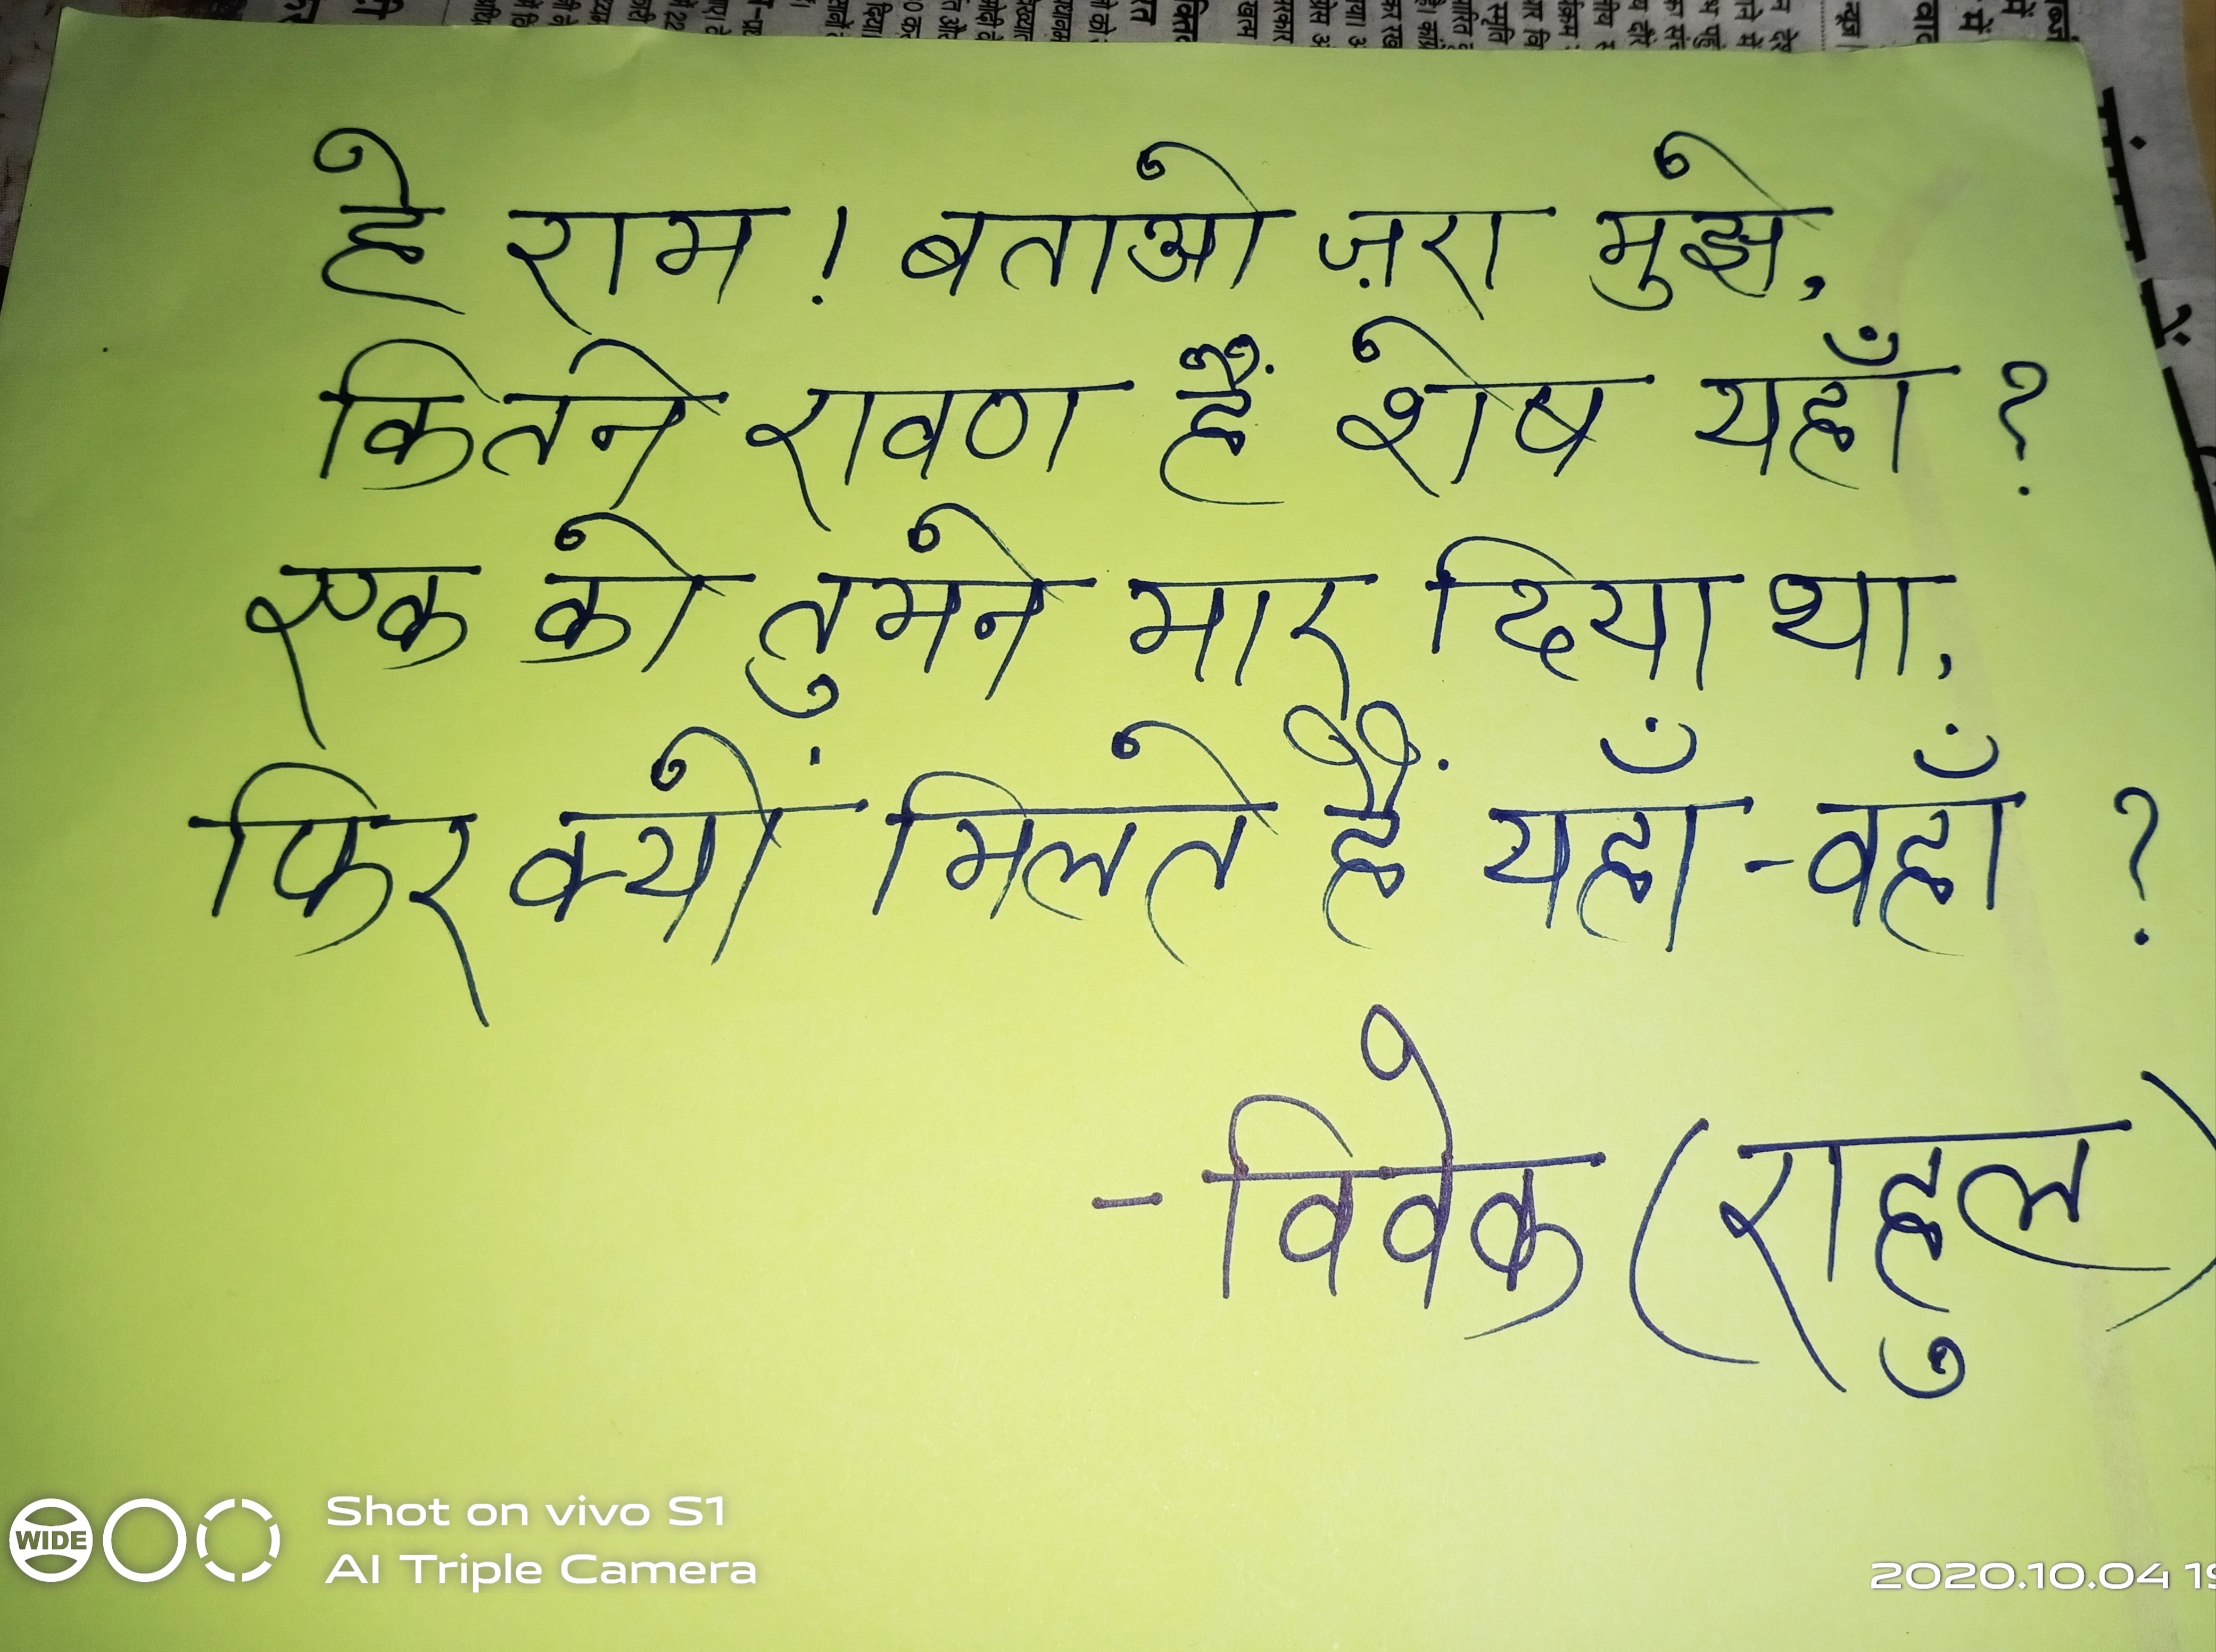 हे राम! बताओ ज़रा मुझे,
कितने रावण हैं शेष यहाँ?
एक को तुमने मार दिया था,
फिर क्यों मिलते हैं यहाँ-वहाँ?
- विवेक (राहुल)
WIDE
Shot on vivo S1
AI Triple Camera
2020.10.04 19